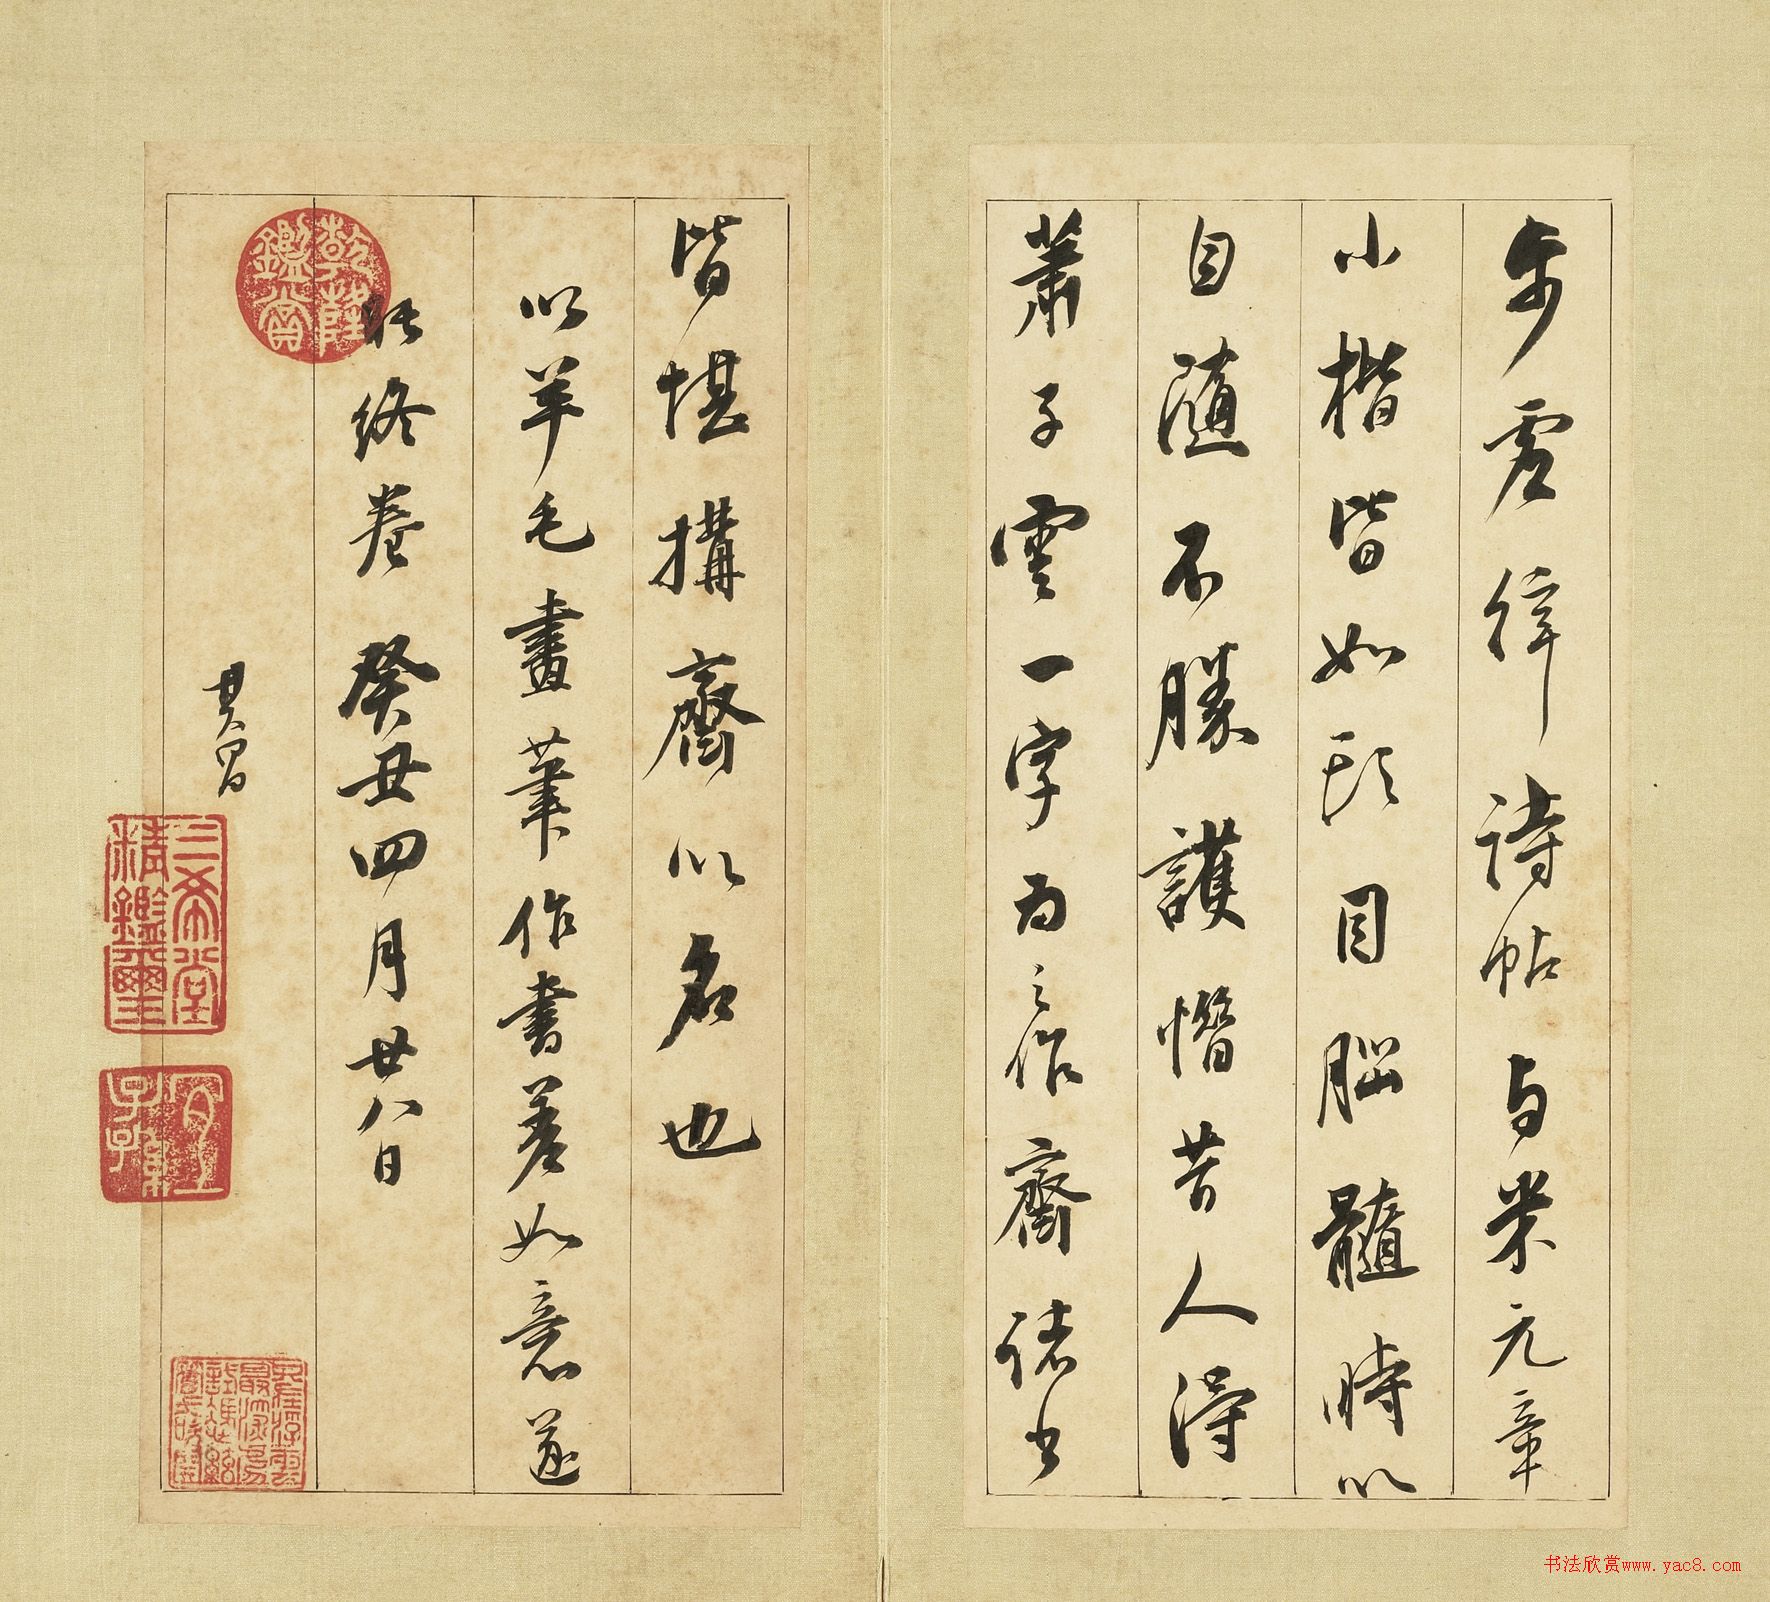 步虛詞詩帖與米元章
小楷皆如頭目腦髓時以
自隨不勝護惜昔人得
蕭子雲一字為之作齋諸書
皆堪搆齋以名也
以羊毛畫筆作書差如意遂
能終卷癸丑四月廿八日
其昌
乾隆鑑賞
三希堂精鑑璽
宜子孫
书法欣赏www.yac8.com